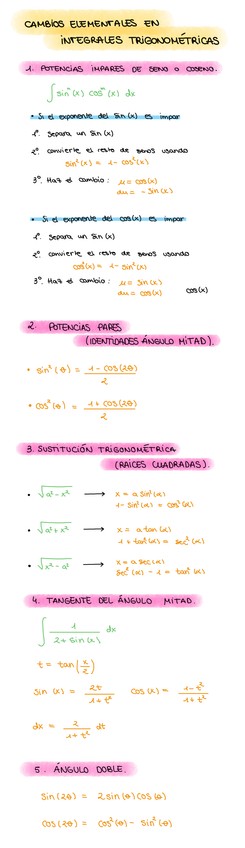 CAMBIOS ELEMENTALES EN
INTEGRALES TRIGONOMÉTRICAS
1. POTENCIAS IMPARES DE SENO O COSENO.
∫ sinⁿ(x) cosᵐ(x) dx
• Si el exponente del sin(x) es impar
1º. Separa un sin(x)
2º. convierte el resto de senos usando
sin²(x) = 1 - cos²(x)
3º. Haz el cambio: u = cos(x)
du = - sin(x)
• Si el exponente del cos(x) es impar
1º. Separa un sin(x)
2º. convierte el resto de senos usando
cos²(x) = 1 - sin²(x)
3º. Haz el cambio: u = sin(x)
du = cos(x) cos(x)
2. POTENCIAS PARES
(IDENTIDADES ÁNGULO MITAD).
• sin²(θ) = (1 - cos(2θ))/2
• cos²(θ) = (1 + cos(2θ))/2
3. SUSTITUCIÓN TRIGONOMÉTRICA
(RAICES CUADRADAS).
• √(a² - x²) → x = a sin(α)
1 - sin²(α) = cos²(α)
• √(a² + x²) → x = a tan(α)
1 + tan²(α) = sec²(α)
• √(x² - a²) → x = a sec(α)
sec²(α) - 1 = tan²(α)
4. TANGENTE DEL ÁNGULO MITAD.
∫ 1/(2 + sin(x)) dx
t = tan(x/2)
sin(x) = 2t/(1+t²) cos(x) = (1-t²)/(1+t²)
dx = 2/(1+t²) dt
5. ÁNGULO DOBLE.
sin(2θ) = 2 sin(θ) cos(θ)
cos(2θ) = cos²(θ) - sin²(θ)